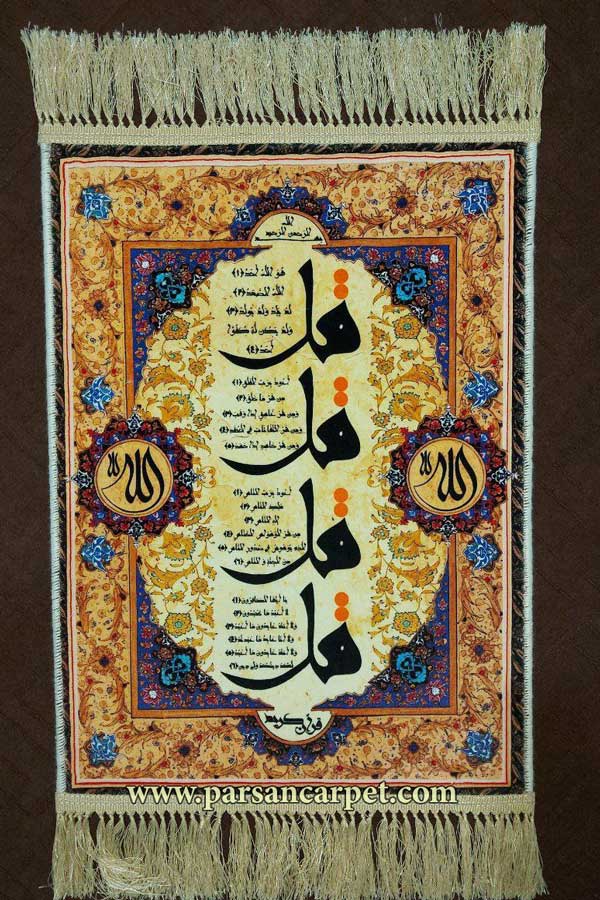 الله
الرحمن الرحيم
قل
هو الله أحد (۱)
الله الصمد (۲)
لم يلد ولم يولد (۳)
ولم يكن له كفوا
أحد (٤)
قل
أعوذ برب الفلق (۱)
من شر ما خلق (۲)
ومن شر غاسق إذا وقب (۳)
ومن شر النفاثات في العقد (٤)
ومن شر حاسد إذا حسد (۵)
قل
أعوذ برب الناس (۱)
ملك الناس (۲)
إله الناس (۳)
من شر الوسواس الخناس (٤)
الذي يوسوس في صدور الناس (۵)
من الجنة و الناس (٦)
قل
يا أيها الكافرون (۱)
لا أعبد ما تعبدون (۲)
ولا أنتم عابدون ما أعبد (۳)
ولا أنا عابد ما عبدتم (٤)
ولا أنتم عابدون ما أعبد (۵)
لكم دينكم ولي دين (٦)
قرآن كريم
الله
الله
www.parsancarpet.com